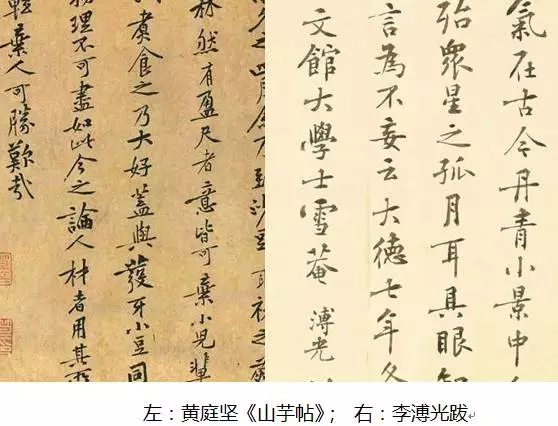 林然有盈尺者意皆可棄小兒輩
煮食之乃大好蓋與護牙小豆同
理不可盡如此今之論人材者用其
輕棄人可勝歎哉
氣在古今丹青小景中
殆眾星之孤月耳具眼知
言為不妄云大德七年冬
文館大學士雪菴 溥光
左：黄庭坚《山芋帖》； 右：李溥光跋